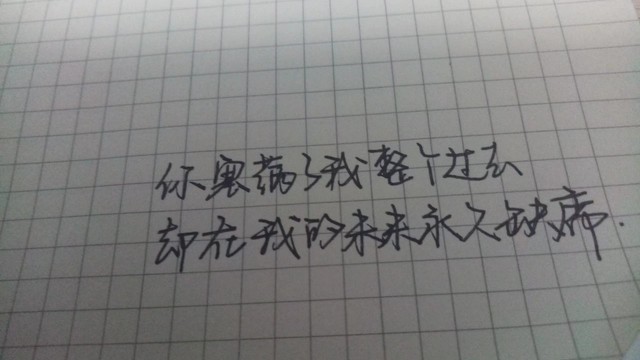 你塞满了我整个过去
却在我的未来永久缺席.